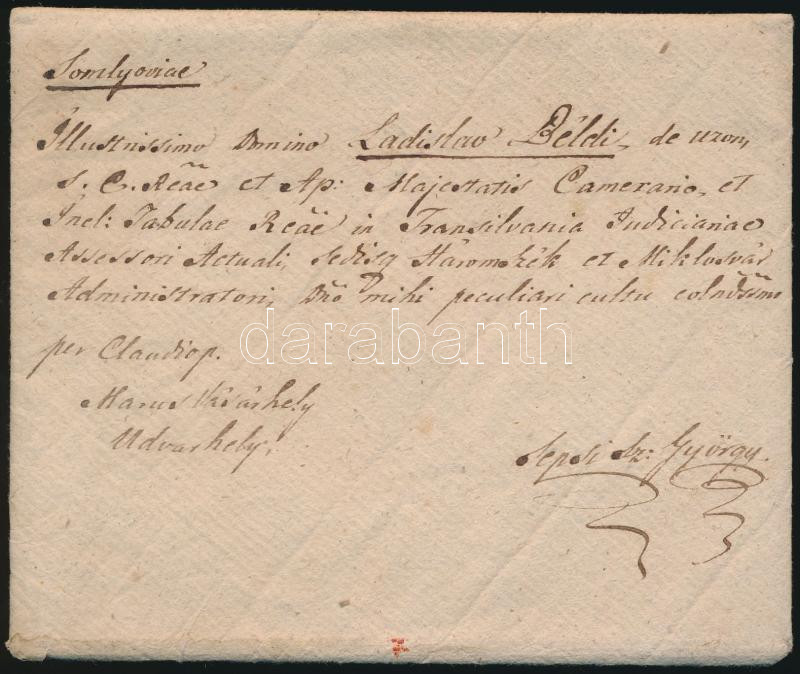 Somlyoviae
Illustrissimo Domino Ladislao Béldi, de uzon,
S. C. Reãe et Ap: Majestatis Camerario, et
Incl: Tabulae Reãe in Transilvania Judiciariae
Assessori Actuali, sedisq Háromszék et Miklosvár
Administratori, Dño mihi peculiari cultu colndssmo
per Claudiop.
Marus Vásárhely
Udvarhely.
Sepsi Sz: György.
darabanth